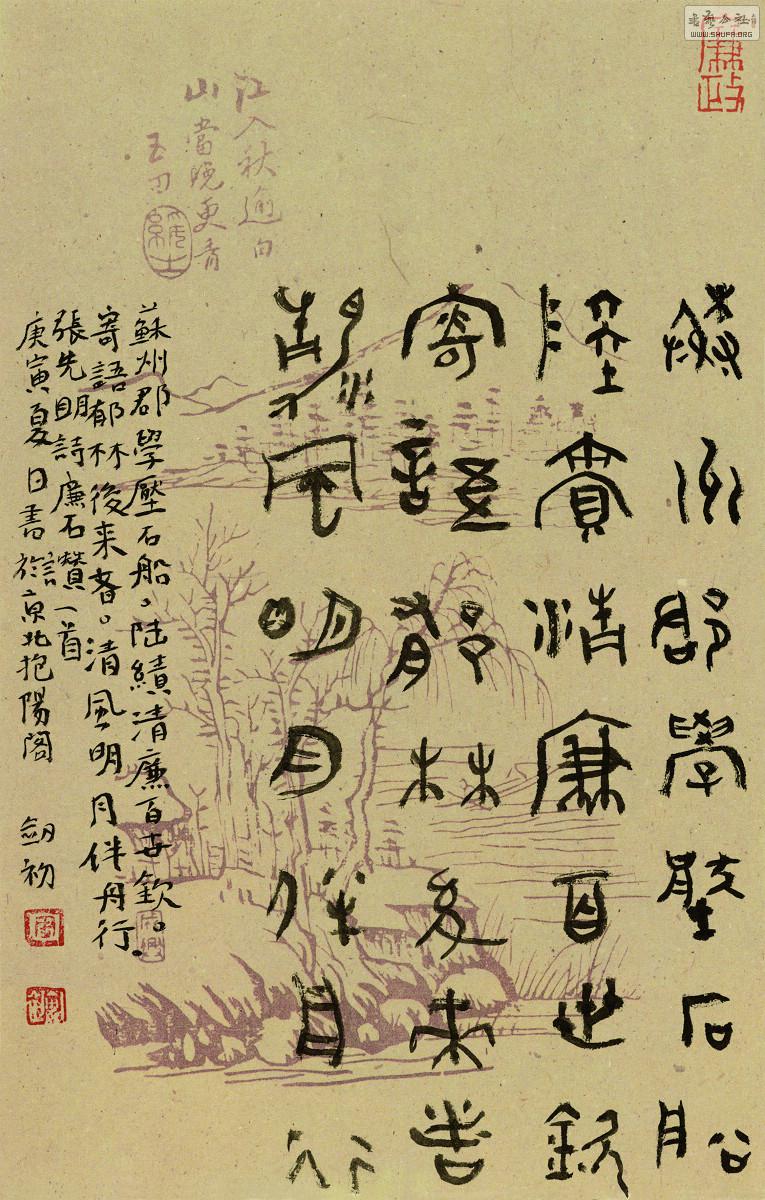 书艺公社
WWW.SHUFA.ORG
廉政
江入秋逾白
山當晚更青
蘇州郡學壓石船
陸績清廉百世欽
寄語郁林後來者
清風明月伴舟行
蘇州郡學壓石船。陸績清廉百世欽。
寄語郁林後來者。清風明月伴舟行
張先明詩廉石贊一首
庚寅夏日書於京北抱陽閣 劍初